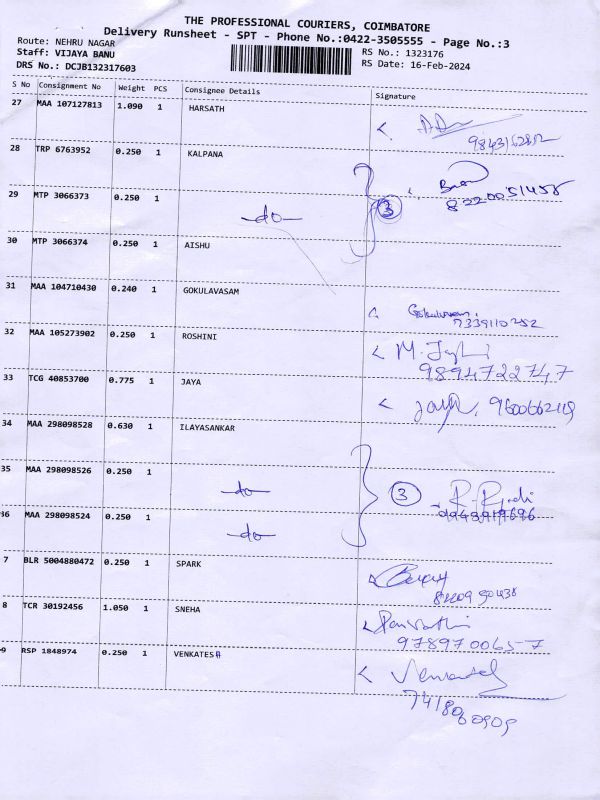 THE PROFESSIONAL COURIERS, COIMBATORE
Delivery Runsheet - SPT - Phone No.:0422-3505555 - Page No.:3
Route: NEHRU NAGAR
Staff: VIJAYA BANU
DRS No.: DCJB132317603
RS No.: 1323176
RS Date: 16-Feb-2024
S No Consignment No Weight PCS Consignee Details Signature
27 MAA 107127813 1.090 1 HARSATH
28 TRP 6763952 0.250 1 KALPANA
29 MTP 3066373 0.250 1 -do- 3
30 MTP 3066374 0.250 1 AISHU
31 MAA 104710430 0.240 1 GOKULAVASAM
7339110252
32 MAA 105273902 0.250 1 ROSHINI
9894722747
33 TCG 40853700 0.775 1 JAYA
34 MAA 298098528 0.630 1 ILAYASANKAR
35 MAA 298098526 0.250 1 -do- 3
36 MAA 298098524 0.250 1 -do-
7 BLR 5004880472 0.250 1 SPARK
8 TCR 30192456 1.050 1 SNEHA
9789700657
9 RSP 1848974 0.250 1 VENKATESA